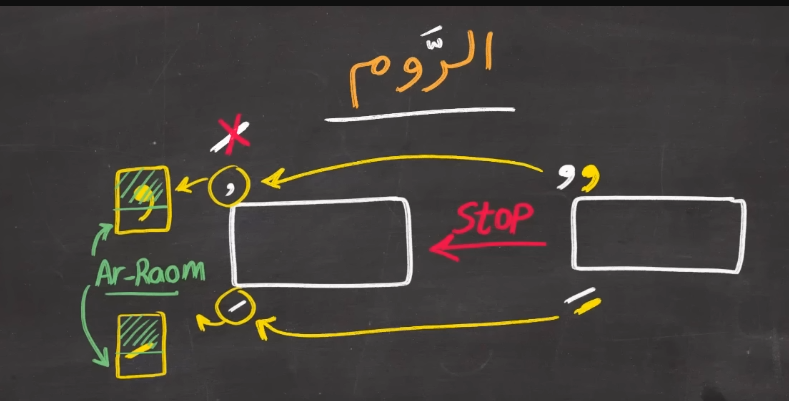 الرَّوم
Stop
Ar-Raom